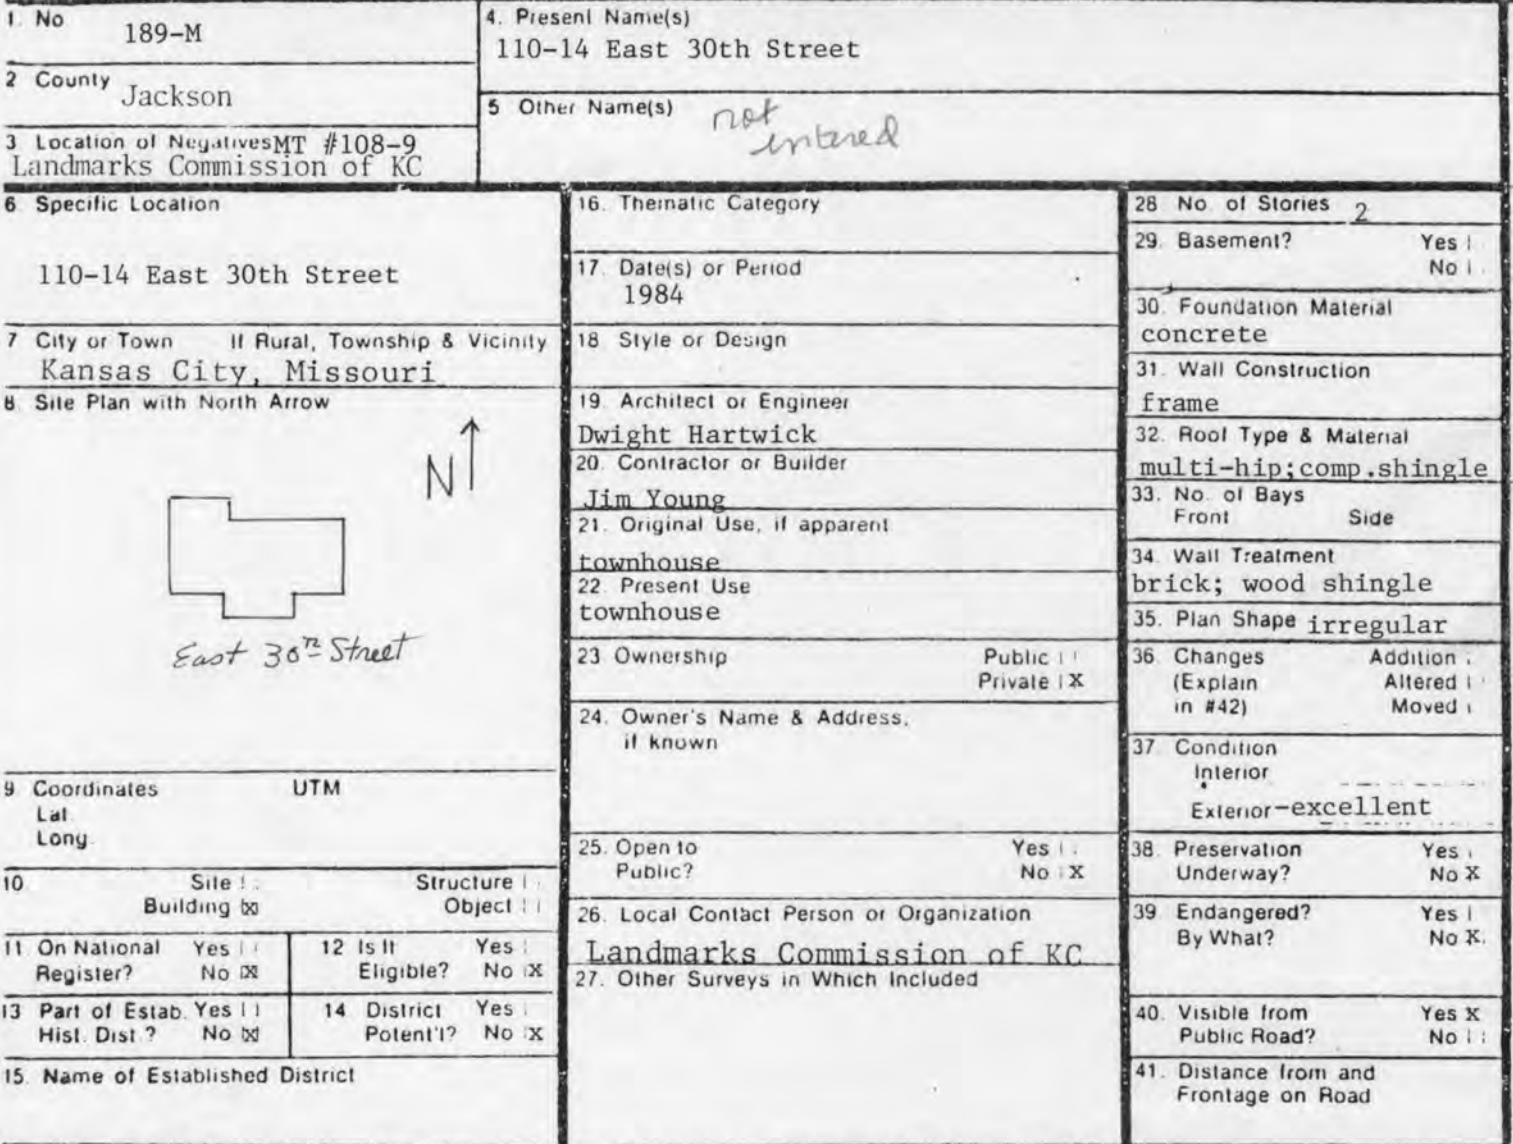 1. No
189-M
2 County
Jackson
3 Location of Negatives MT #108-9
Landmarks Commission of KC
4. Present Name(s)
110-14 East 30th Street
5 Other Name(s)
not
entered
6 Specific Location
110-14 East 30th Street
7 City or Town If Rural, Township & Vicinity
Kansas City, Missouri
8 Site Plan with North Arrow
N
East 30th Street
9 Coordinates UTM
Lat
Long.
10 Site Structure
Building X Object
11 On National Yes
Register? No X
12 Is It Yes
Eligible? No X
13 Part of Estab. Yes
Hist. Dist.? No X
14 District Yes
Potent'l? No X
15. Name of Established District
16. Thematic Category
17. Date(s) or Period
1984
18 Style or Design
19. Architect or Engineer
Dwight Hartwick
20. Contractor or Builder
Jim Young
21. Original Use, if apparent
townhouse
22 Present Use
townhouse
23 Ownership Public
Private X
24. Owner's Name & Address,
if known
25. Open to Yes
Public? No X
26. Local Contact Person or Organization
Landmarks Commission of KC
27. Other Surveys in Which Included
28 No. of Stories 2
29. Basement? Yes
No
30. Foundation Material
concrete
31. Wall Construction
frame
32. Roof Type & Material
multi-hip;comp.shingle
33. No. of Bays
Front Side
34. Wall Treatment
brick; wood shingle
35. Plan Shape irregular
36. Changes Addition
(Explain Altered
in #42) Moved
37. Condition
Interior
Exterior-excellent
38. Preservation Yes
Underway? No X
39. Endangered? Yes
By What? No X
40. Visible from Yes X
Public Road? No
41. Distance from and
Frontage on Road